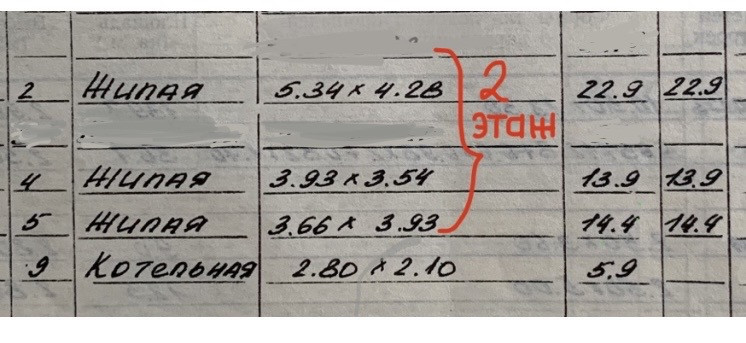 2 Жилая 5.34 × 4.28 22.9 22.9
2 этаж
4 Жилая 3.93 × 3.54 13.9 13.9
5 Жилая 3.66 × 3.93 14.4 14.4
9 Котельная 2.80 × 2.10 5.9